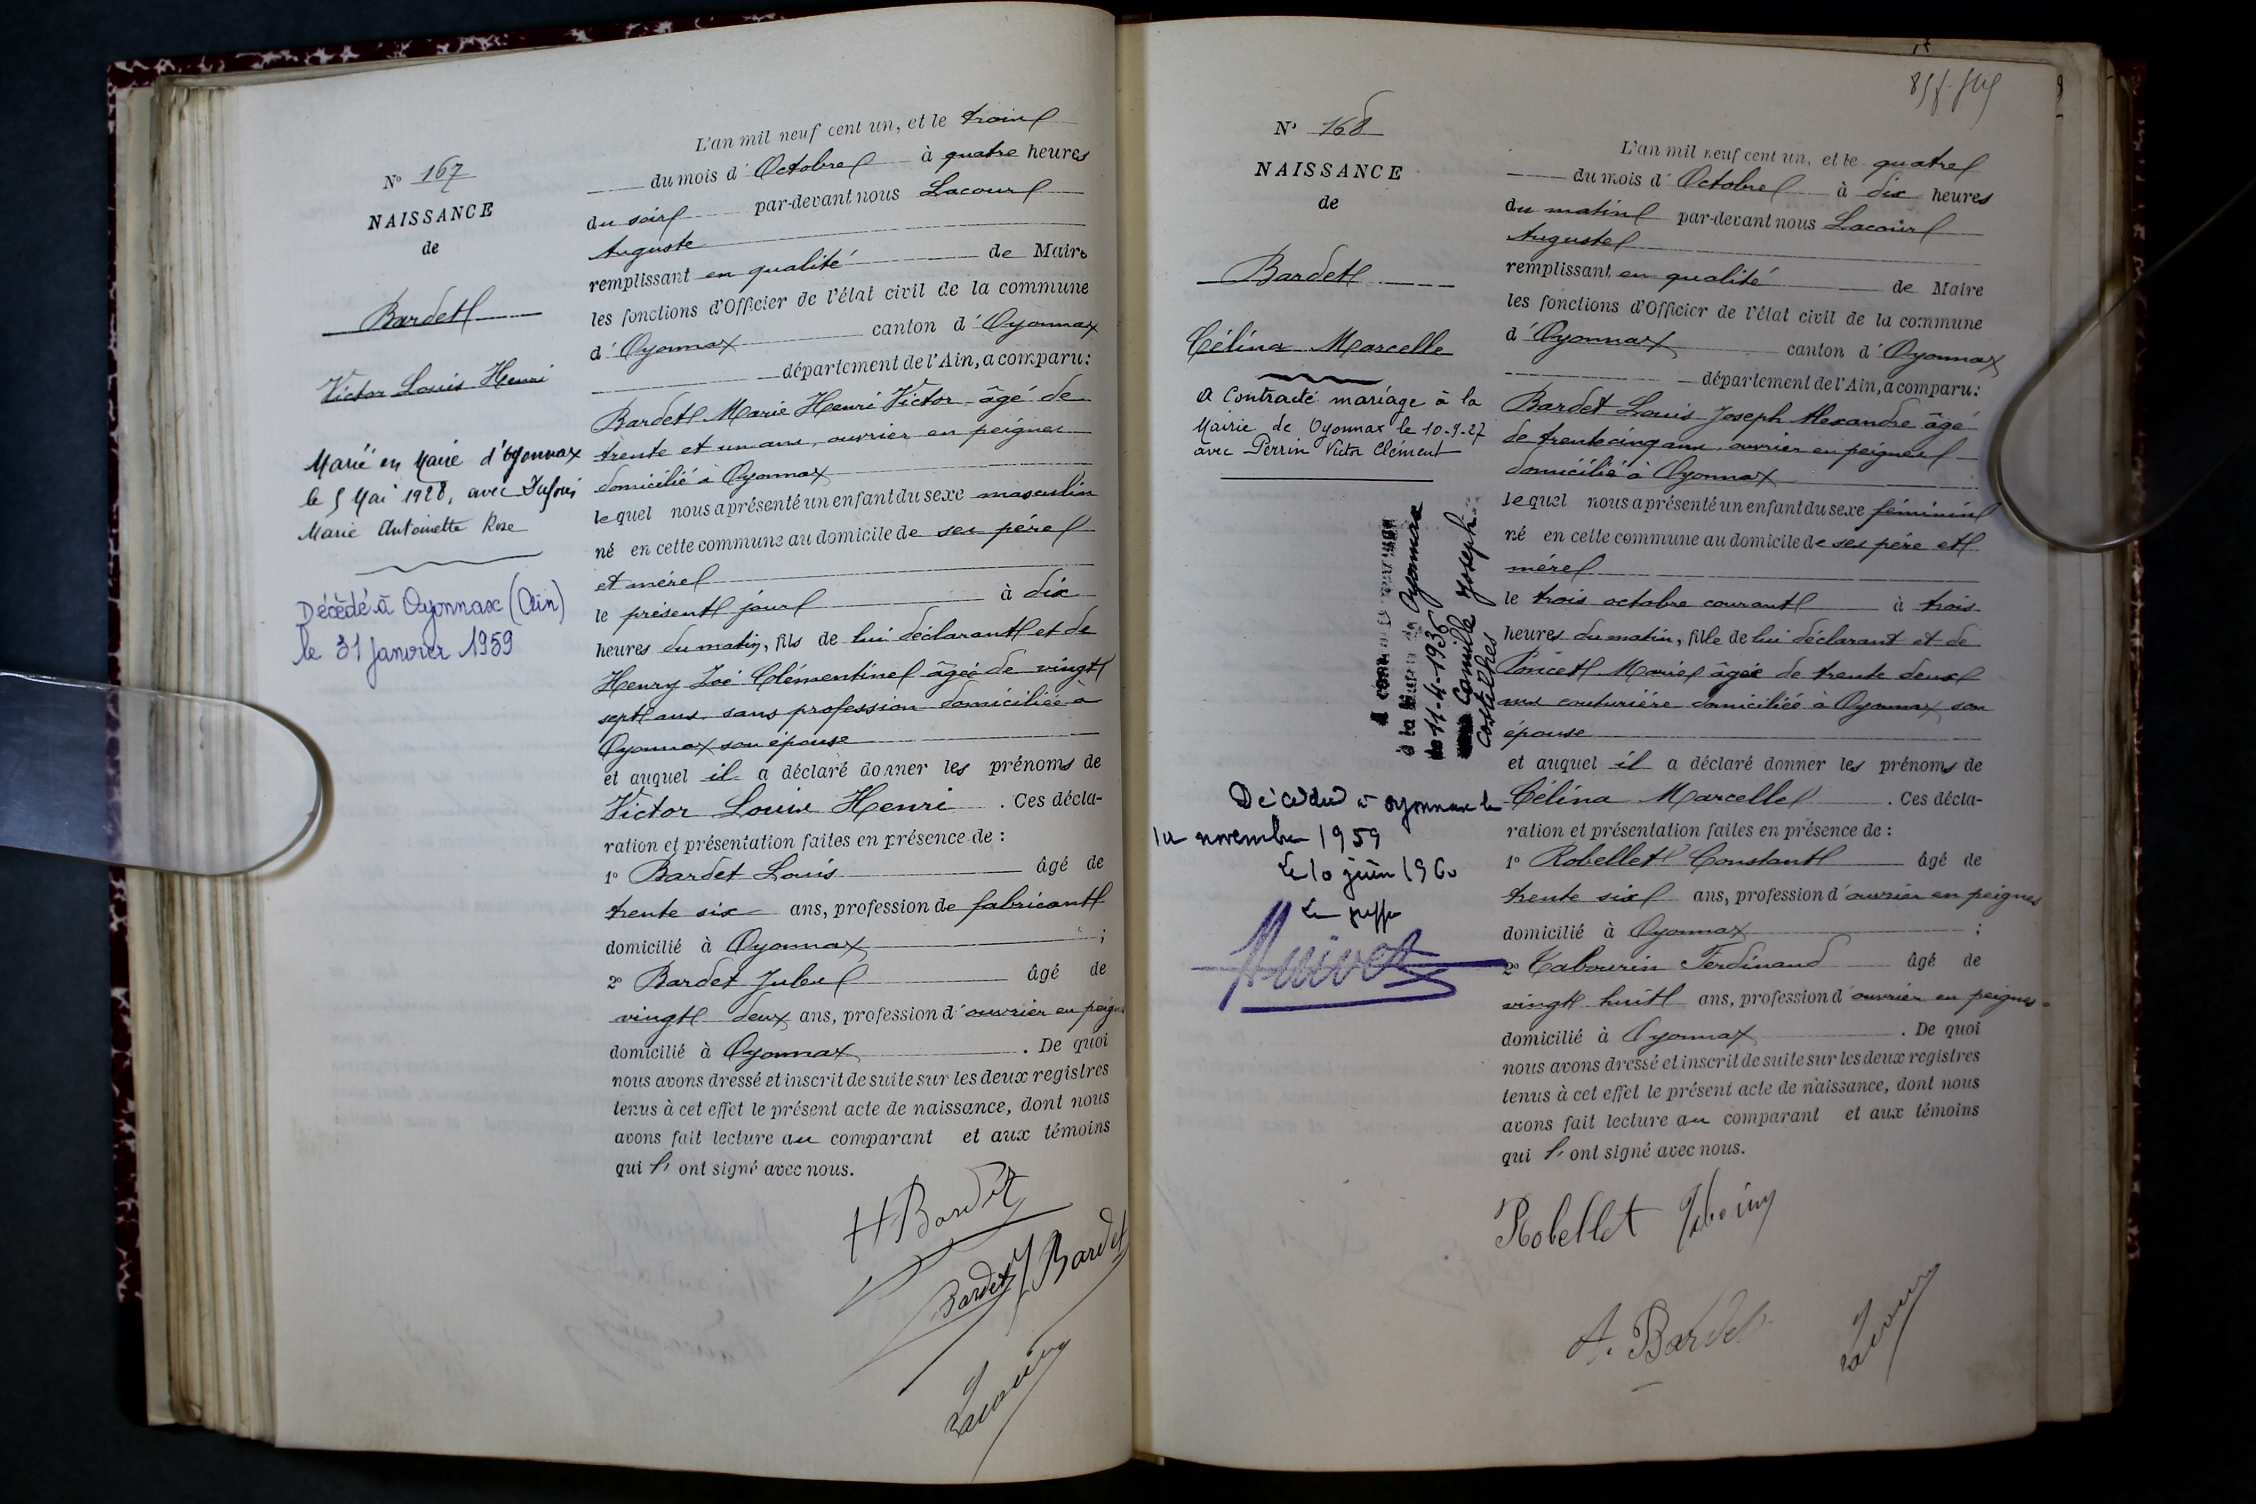 N° 167
NAISSANCE
de
Bardet
Victor Louis Henri
Marié en Mairie d'Oyonnax
le 5 Mai 1928, avec
Marie Antoinette Rose
Décédé à Oyonnax (Ain)
le 31 janvier 1959
L'an mil neuf cent un, et le trois
du mois d'Octobre à quatre heures
du soir par-devant nous Lacour
Auguste
remplissant en qualité de Maire
les fonctions d'Officier de l'état civil de la commune
d'Oyonnax canton d'Oyonnax
département de l'Ain, a comparu:
Bardet Marie Henri Victor âgé de
trente et un ans, ouvrier en peignes
domicilié à Oyonnax
lequel nous a présenté un enfant du sexe masculin
né en cette commune au domicile de ses père
et mère
le présent jour à dix
heures du matin, fils de lui déclarant et de
Henry Zoé Clémentine âgée de vingt
sept ans, sans profession domiciliée à
Oyonnax son épouse
et auquel il a déclaré donner les prénoms de
Victor Louis Henri. Ces décla-
ration et présentation faites en présence de :
1° Bardet Louis âgé de
trente six ans, profession de fabricant
domicilié à Oyonnax ;
2° Bardet Jules âgé de
vingt deux ans, profession d'ouvrier en peignes
domicilié à Oyonnax. De quoi
nous avons dressé et inscrit de suite sur les deux registres
tenus à cet effet le présent acte de naissance, dont nous
avons fait lecture au comparant et aux témoins
qui l'ont signé avec nous.
H Bardet
Bardet J Bardet
Lacour
N° 168
NAISSANCE
de
Bardet
Célina Marcelle
A Contracté mariage à la
Mairie de Oyonnax le 10-9-27
avec Perrin Victor Clément
à la Mairie de Oyonnax
le 11-4-1936
Camille Joseph
Costilhes
Décédée à Oyonnax le
novembre 1959
Le 10 juin 1960
L'an mil neuf cent un, et le quatre
du mois d'Octobre à dix heures
du matin par-devant nous Lacour
Auguste
remplissant en qualité de Maire
les fonctions d'Officier de l'état civil de la commune
d'Oyonnax canton d'Oyonnax
département de l'Ain, a comparu:
Bardet Louis Joseph Alexandre âgé
de trente cinq ans, ouvrier en peignes
domicilié à Oyonnax
lequel nous a présenté un enfant du sexe féminin
né en cette commune au domicile de ses père et
mère
le trois octobre courant à trois
heures du matin, fille de lui déclarant et de
Poncet Marie âgée de trente deux
ans couturière domiciliée à Oyonnax son
épouse
et auquel il a déclaré donner les prénoms de
Célina Marcelle. Ces décla-
ration et présentation faites en présence de :
1° Robellet Constant âgé de
trente six ans, profession d'ouvrier en peignes
domicilié à Oyonnax ;
2° Tabourin Ferdinand âgé de
vingt huit ans, profession d'ouvrier en peignes
domicilié à Oyonnax. De quoi
nous avons dressé et inscrit de suite sur les deux registres
tenus à cet effet le présent acte de naissance, dont nous
avons fait lecture au comparant et aux témoins
qui l'ont signé avec nous.
Robellet
A. Bardet
Lacour